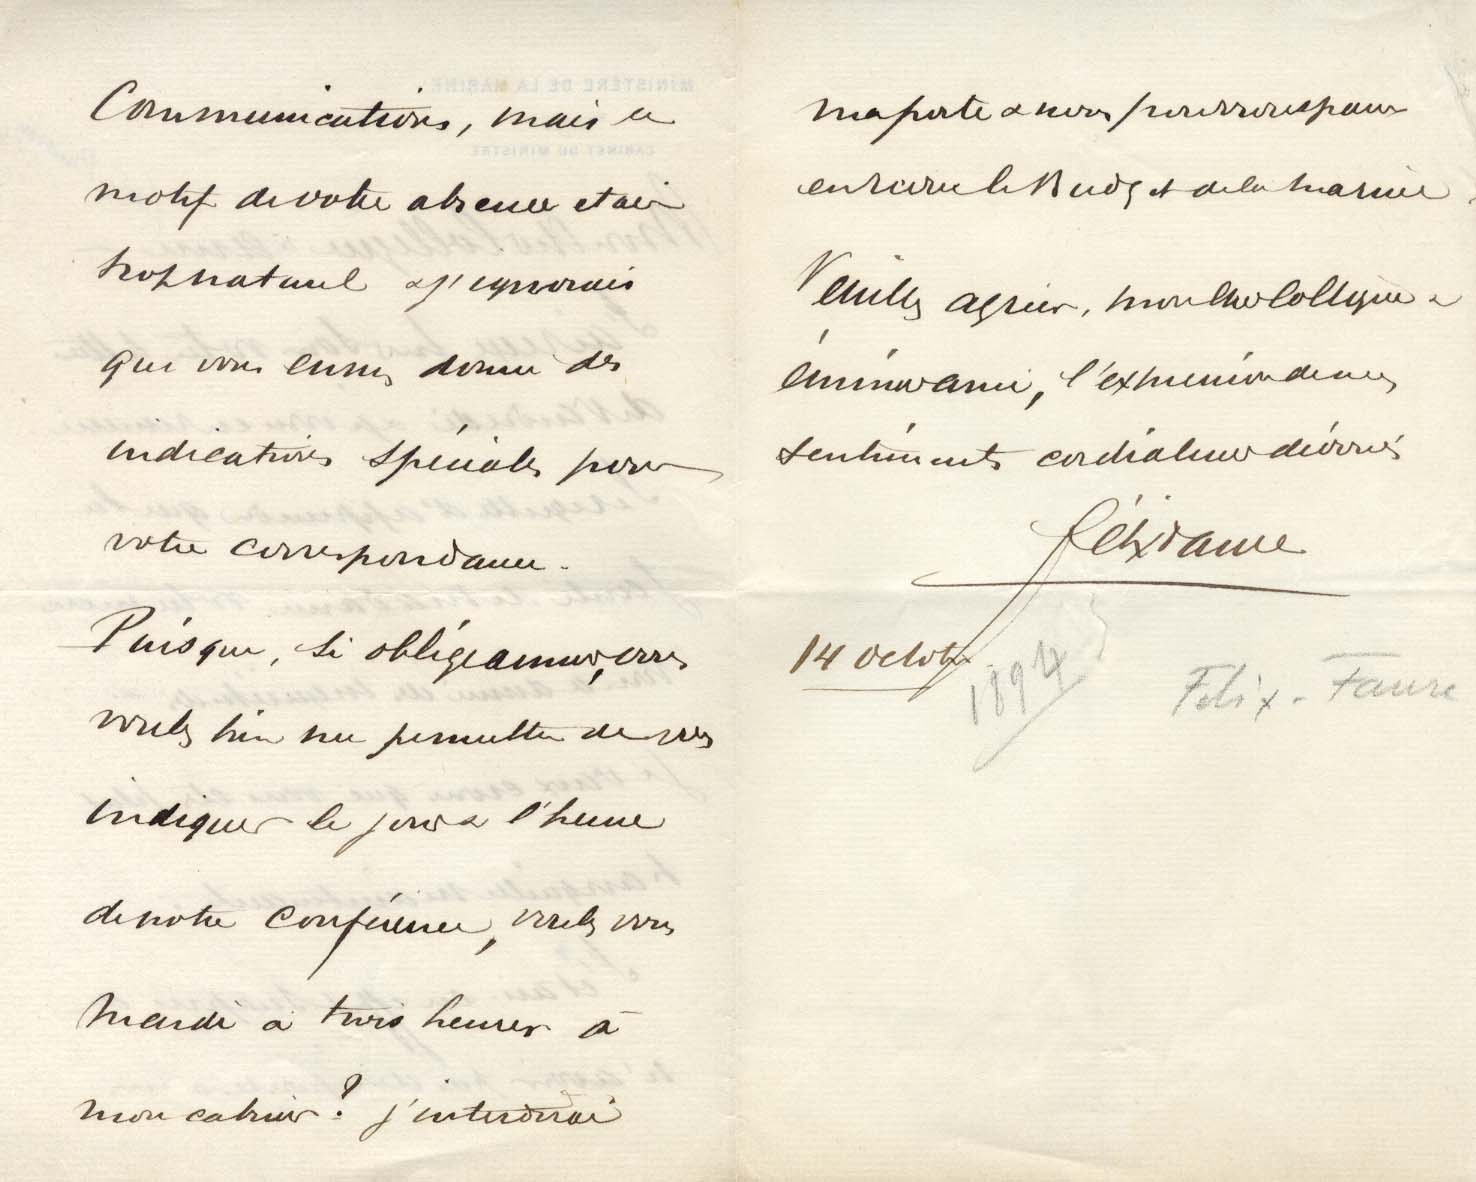 Communications, mais le
motif de votre absence était
trop naturel & j'ignorais
que vous eussiez donné des
indications spéciales pour
votre correspondance.
Puisque, si obligeamment, vous
voulez bien me permettre de vous
indiquer le jour & l'heure
de notre conférence, voulez vous
Mardi à trois heures à
mon cabinet? j'interdirai
ma porte & nous pourrons
ensemble le Budget de la Marine.
Veuillez agréer, mon cher Collègue &
éminent ami, l'expression de mes
sentiments cordialement dévoués
Félix Faure
14 octobre
1894
Félix-Faure
MINISTÈRE DE LA MARINE
CABINET DU MINISTRE